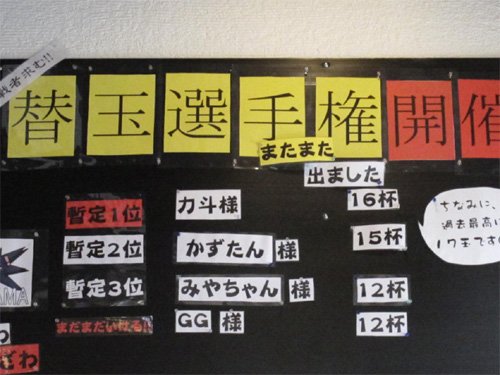 戦者求む!!
替玉選手権開催
またまた
出ました
暫定1位 力斗様 16杯
暫定2位 かずたん様 15杯
暫定3位 みやちゃん様 12杯
まだまだいける!! GG様 12杯
ちなみに、
過去最高は
17玉です
AMA
わ
ざわ